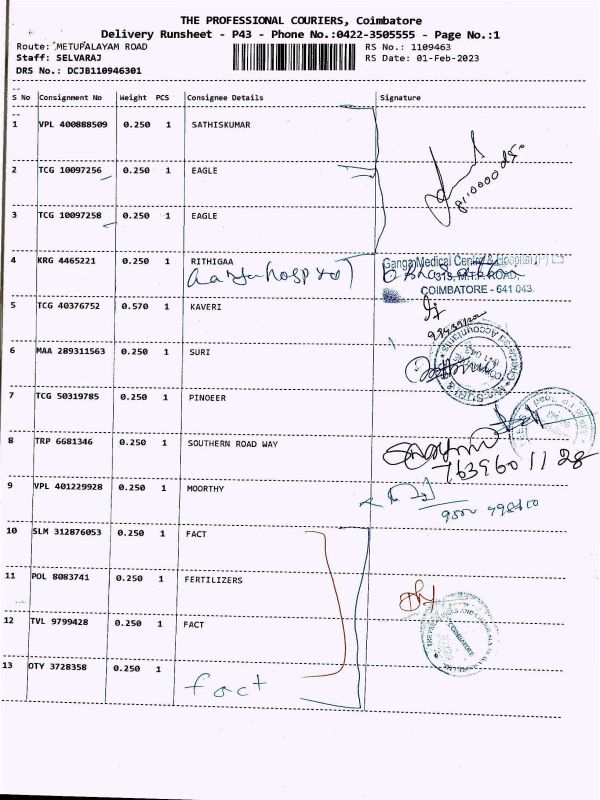 THE PROFESSIONAL COURIERS, Coimbatore
Delivery Runsheet - P43 - Phone No.:0422-3505555 - Page No.:1
Route: METUPALAYAM ROAD RS No.: 1109463
Staff: SELVARAJ RS Date: 01-Feb-2023
DRS No.: DCJB110946301
S No Consignment No Weight PCS Consignee Details Signature
1 VPL 400888509 0.250 1 SATHISKUMAR
2 TCG 10097256 0.250 1 EAGLE
3 TCG 10097258 0.250 1 EAGLE
4 KRG 4465221 0.250 1 RITHIGAA
Ganga Medical Centre & Hospital (P) Ltd
313, M.T.P. ROAD,
COIMBATORE - 641 043.
5 TCG 40376752 0.570 1 KAVERI
6 MAA 289311563 0.250 1 SURI
7 TCG 50319785 0.250 1 PINOEER
8 TRP 6681346 0.250 1 SOUTHERN ROAD WAY
7639601128
9 VPL 401229928 0.250 1 MOORTHY
10 SLM 312876053 0.250 1 FACT
11 POL 8083741 0.250 1 FERTILIZERS
12 TVL 9799428 0.250 1 FACT
COIMBATORE
13 OTY 3728358 0.250 1
fact